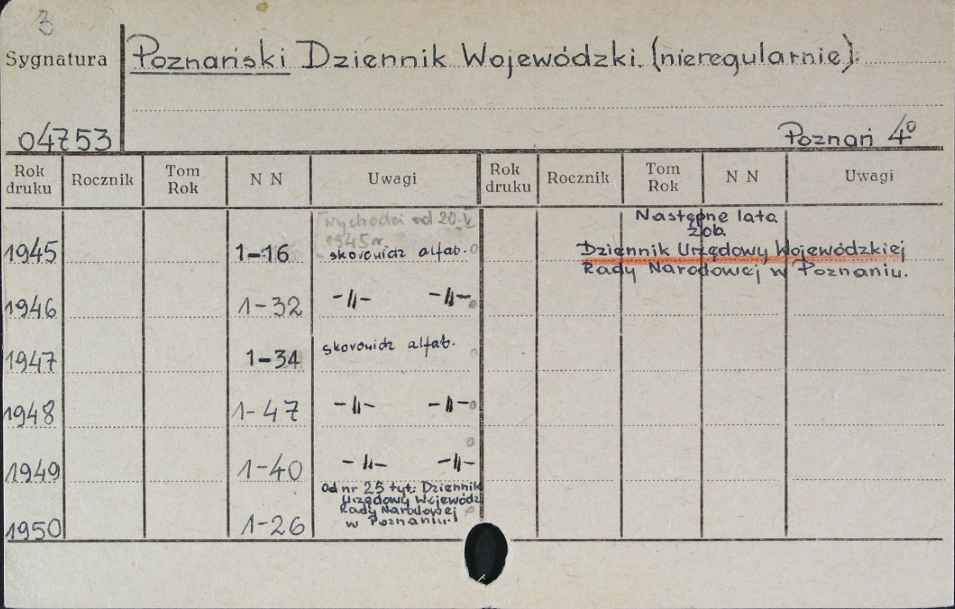 3
Sygnatura
Poznański Dziennik Wojewódzki. (nieregularnie).
04753
Poznań 4°
Rok druku Rocznik Tom Rok N N Uwagi Rok druku Rocznik Tom Rok N N Uwagi
wychodzi od 20.V
1945 r.
1945 1-16 skorowidz alfab.
1946 1-32 -„- -„-
1947 1-34 skorowidz alfab.
1948 1-47 -„- -„-
1949 1-40 -„- -„-
1950 1-26 Od nr 25 tyt.: Dziennik
Urzędowy Wojewódz
Rady Narodowej
w Poznaniu.
Następne lata
zob.
Dziennik Urzędowy Wojewódzkiej
Rady Narodowej w Poznaniu.